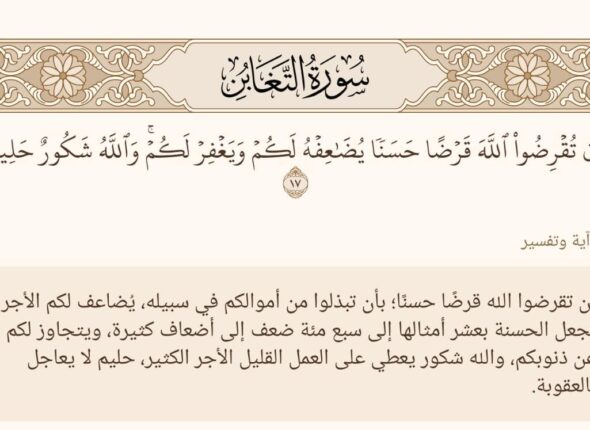 سُورَةُ التَّغَابُنِ
تُقْرِضُوا۟ ٱللَّهَ قَرْضًا حَسَنًا يُضَـٰعِفْهُ لَكُمْ وَيَغْفِرْ لَكُمْ ۚ وَٱللَّهُ شَكُورٌ
١٧
آية وتفسير
تقرضوا الله قرضًا حسنًا؛ بأن تبذلوا من أموالكم في سبيله، يُضاعف لكم الأجر
جعل الحسنة بعشر أمثالها إلى سبع مئة ضعف إلى أضعاف كثيرة، ويتجاوز لكم
عن ذنوبكم، والله شكور يعطي على العمل القليل الأجر الكثير، حليم لا يعاجل
بالعقوبة.